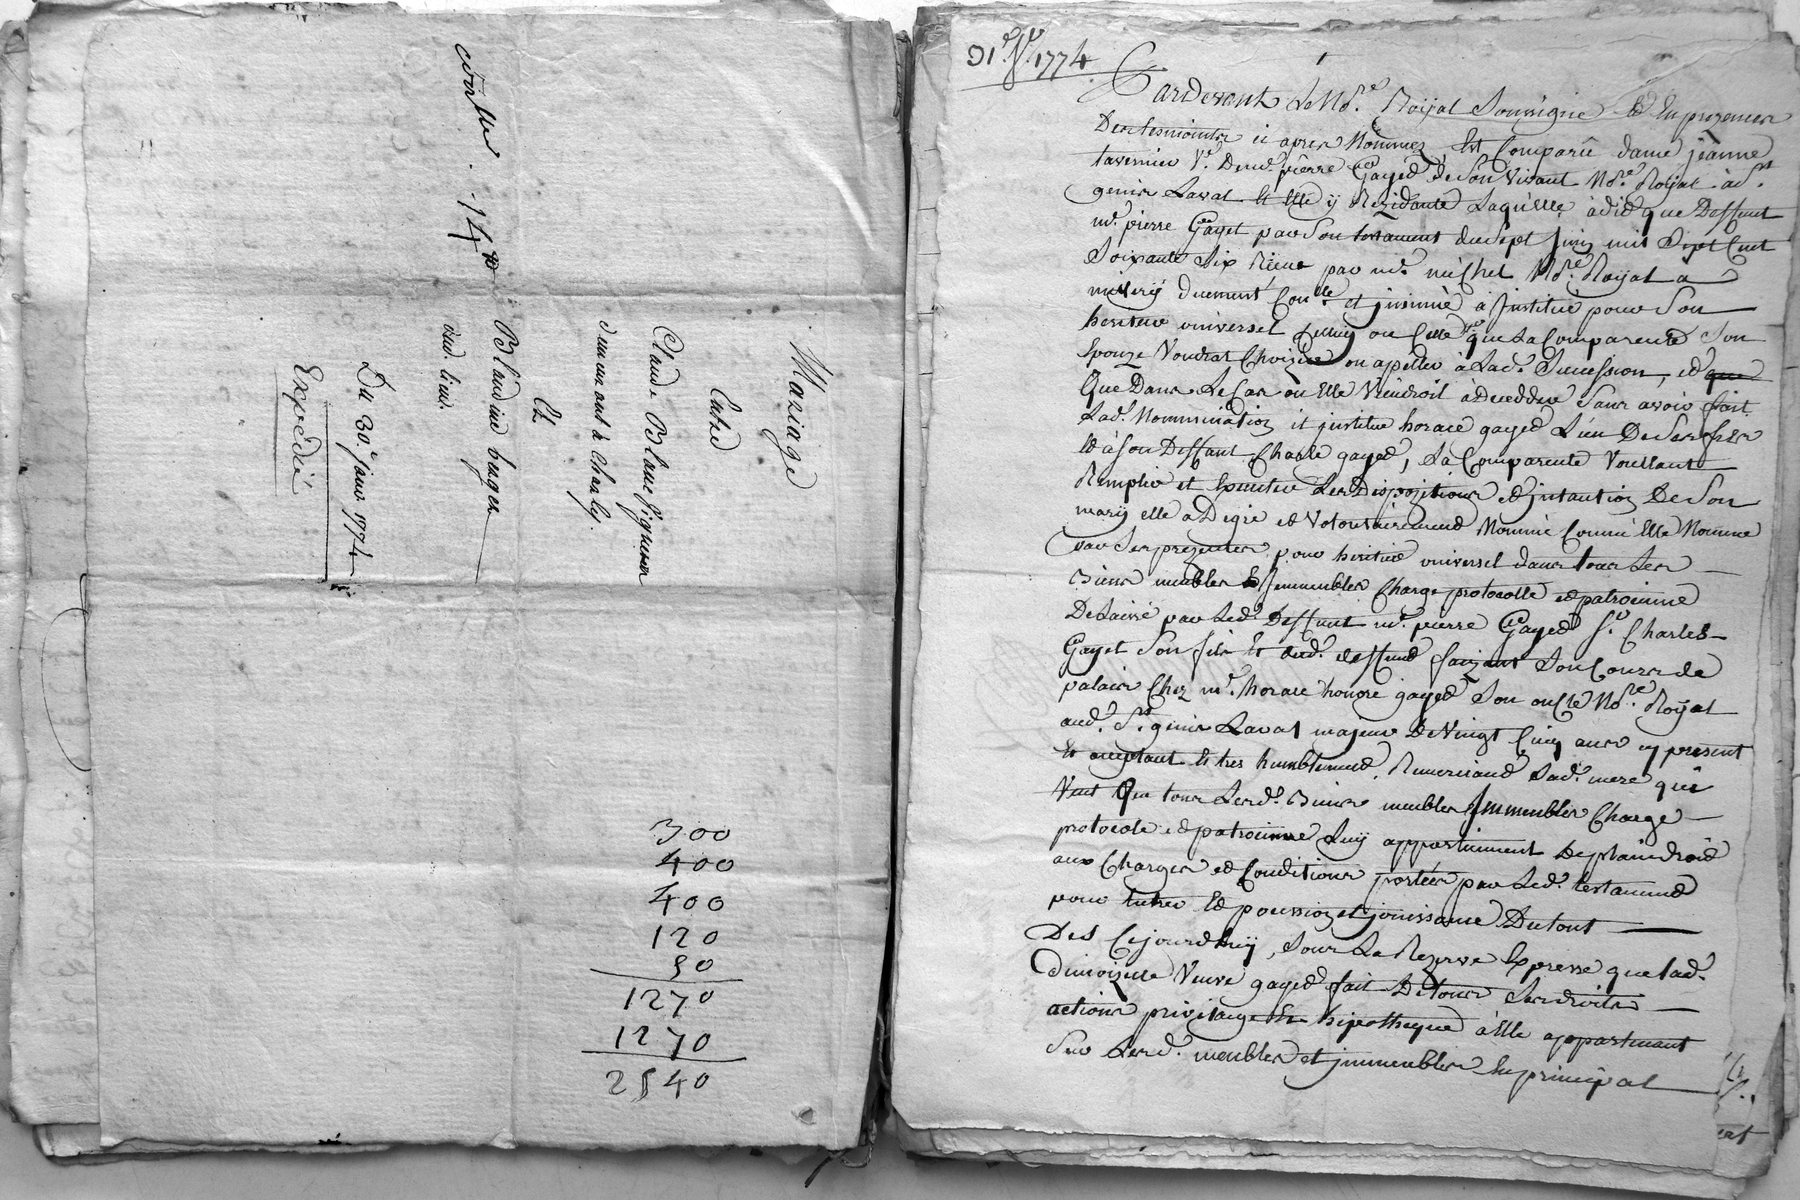 contrôlé. 14ᵗᵗ
Mariage
Entre
Claude Blanc vigneron
demeurant à Charly.
Et
Blandine berger
dud. lieu.
Du 30.ᵉ janv 1774
Expédié
300
400
400
120
50
1270
1270
2540
31.ᵉ J.ʳ 1774
Pardevant Le No.ʳᵉ Royal Soussigné Et En presence
Des tesmoints ci apres Nommez, Est Comparüe dame jeanne
tavernier V.ᵉ De m.ᵉ pierre Gayet de Son Vivant No.ʳᵉ Royal à S.ᵗ
genis Laval Et Elle ÿ Rezidante Laquelle à dit que Deffunt
m.ᵉ pierre Gayet par Son testament du Sept Juin mil Sept Cent
Soixante Six Reçue par m.ᵉ michel No.ʳᵉ Royal a
millerÿ duement Con.ˡˡᵉ et jnsinué à Jnstitué pour Son
heritier universel Celluy ou Celle que La Comparente Son
Epouze Voudrat Choizir ou apeller à Lad.ᵉ Sucession, et que
Que Dans Le Cas ou Elle Viendroit à Decedder Sans avoir fait
Lad.ᵉ Nommination it jnstitue horace gayet L'un De Ses fils
Et à Son Deffaut Charle gayet, La Comparente Voullant
Remplir et Executer Les Dispozitions et jntantion De Son
marÿ elle a De gré et Volontairement Nommé Comme Elle Nomme
par Ses presentes pour heritier universel dans tous Les
Biens meubles Et Jmmeubles Charge protocolle et patrocinne
Delaissé par Led.ᵗ Deffunt m.ᵉ pierre Gayet S.ʳ Charles
Gayet Son fils Et dud.ᵗ deffunt faizant Son Cours de
palais Chez m.ᵉ horace honoré gayet Son oncle No.ʳᵉ Royal
aud.ᵗ S.ᵗ genis Laval majeur De Vingt Cinq ans cy present
Et acceptant Et tres humblement Remerciant Sad.ᵉ mere qui
Veut Que tous Lesd.ᵗˢ Biens meubles Jmmeubles Charge
protocole et patrocinne Luÿ appartiennent De plain droit
aux Charges et Conditions portées par Led.ᵗ testament
pour Entrer Et poursion et jouissance Du tout
Des Cejourd'huÿ, Sous La Rezerve Expresse que Lad.ᵉ
Dmoizelle Veuve gayet fait De tous Ses droits
actions privilaige Et hipotheque à Elle appartenant
Sur Lesd.ᵗˢ meubles et jmmeubles En principal